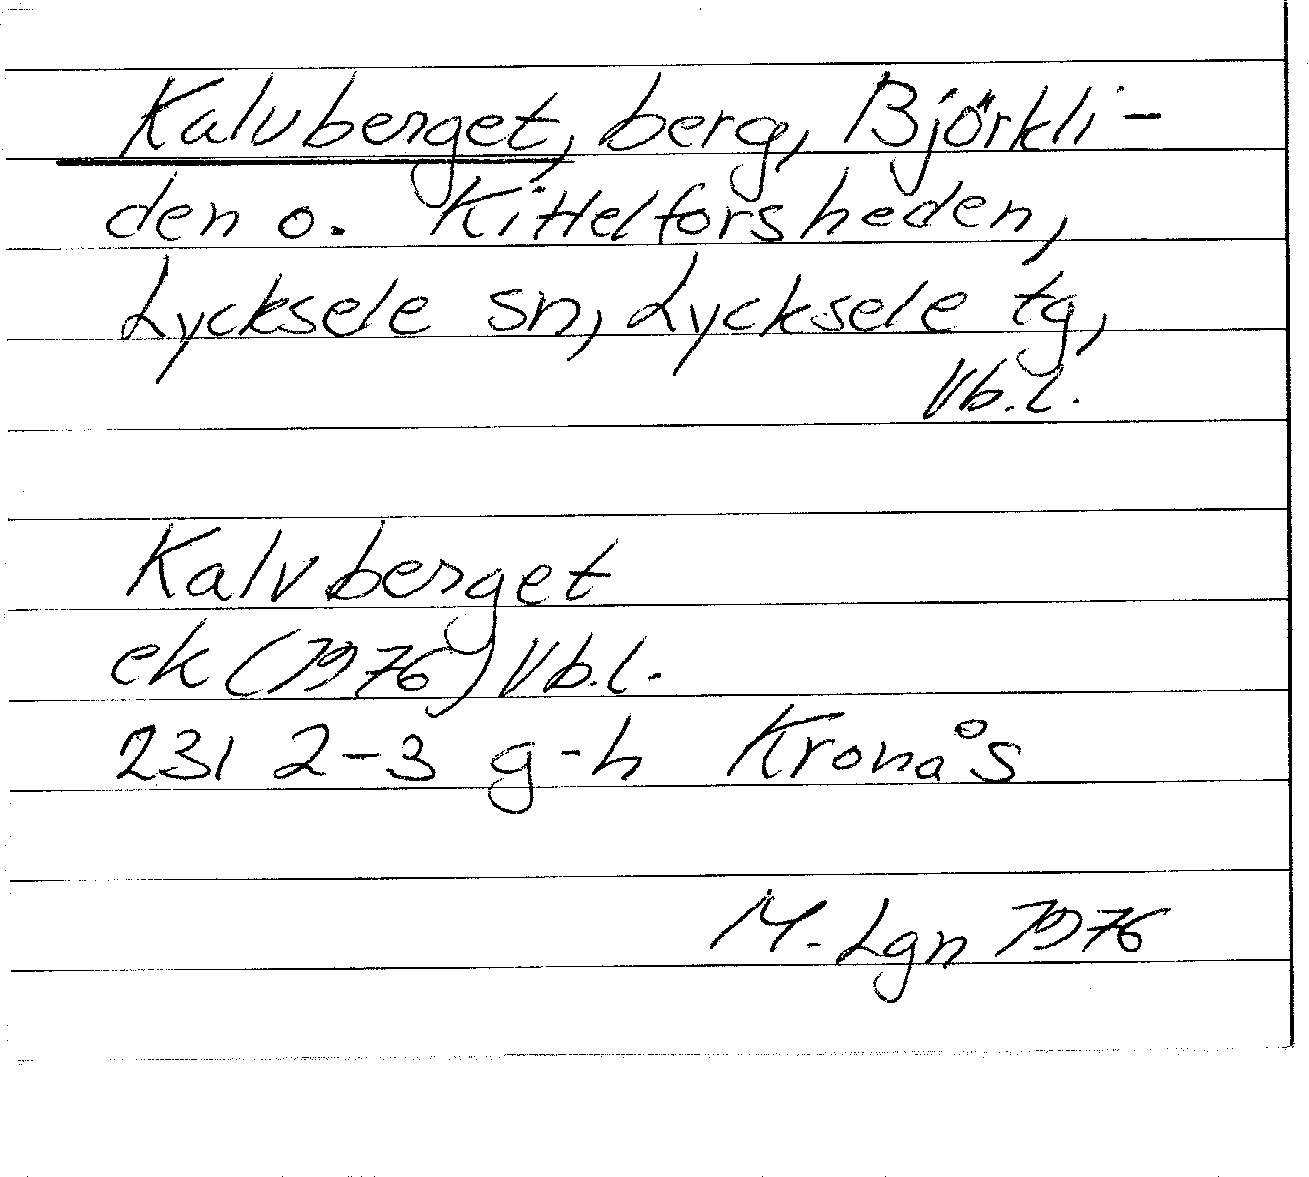 Kalvberget, berg, Björkli-
den o. Kittelforsheden,
Lycksele sn, Lycksele tg,
Vb.l.
Kalvberget
ek (1976) Vb.l.
231 2-3 g-h Kronås
M. Lgn 1976